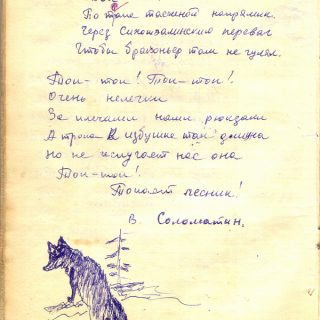 По тропе таежной напрямик.
Через Сихотэалинский перевал
Чтобы браконьер там не гулял.
Топ-топ! Топ-топ!
Очень нелегки
За плечами наши рюкзаки
А тропа к избушке так длинна
Но не испугает нас она
Топ-топ!
Топает лесник!
В. Соломатин.